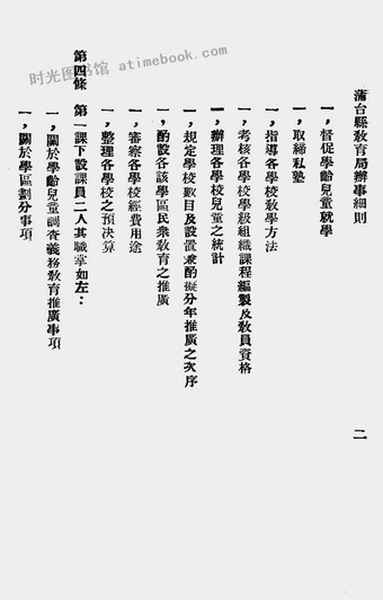 时光图书馆 atimebook.com
蒲台縣敎育局辦事細則
二
一，督促學齡兒童就學
一，取締私塾
一，指導各學校敎學方法
一，考核各學校學級組織課程編製及敎員資格
一，辦理各學校兒童之統計
一，規定學校數目及設置處酌擬分年推廣之次序
一，酌設各該學區民衆敎育之推廣
一，審察各學校經費用途
一，整理各學校之預决算
第四條　第一課下設課員二人其職掌如左：
一，關於學齡兒童調查義務敎育推廣事項
一，關於學區劃分事項